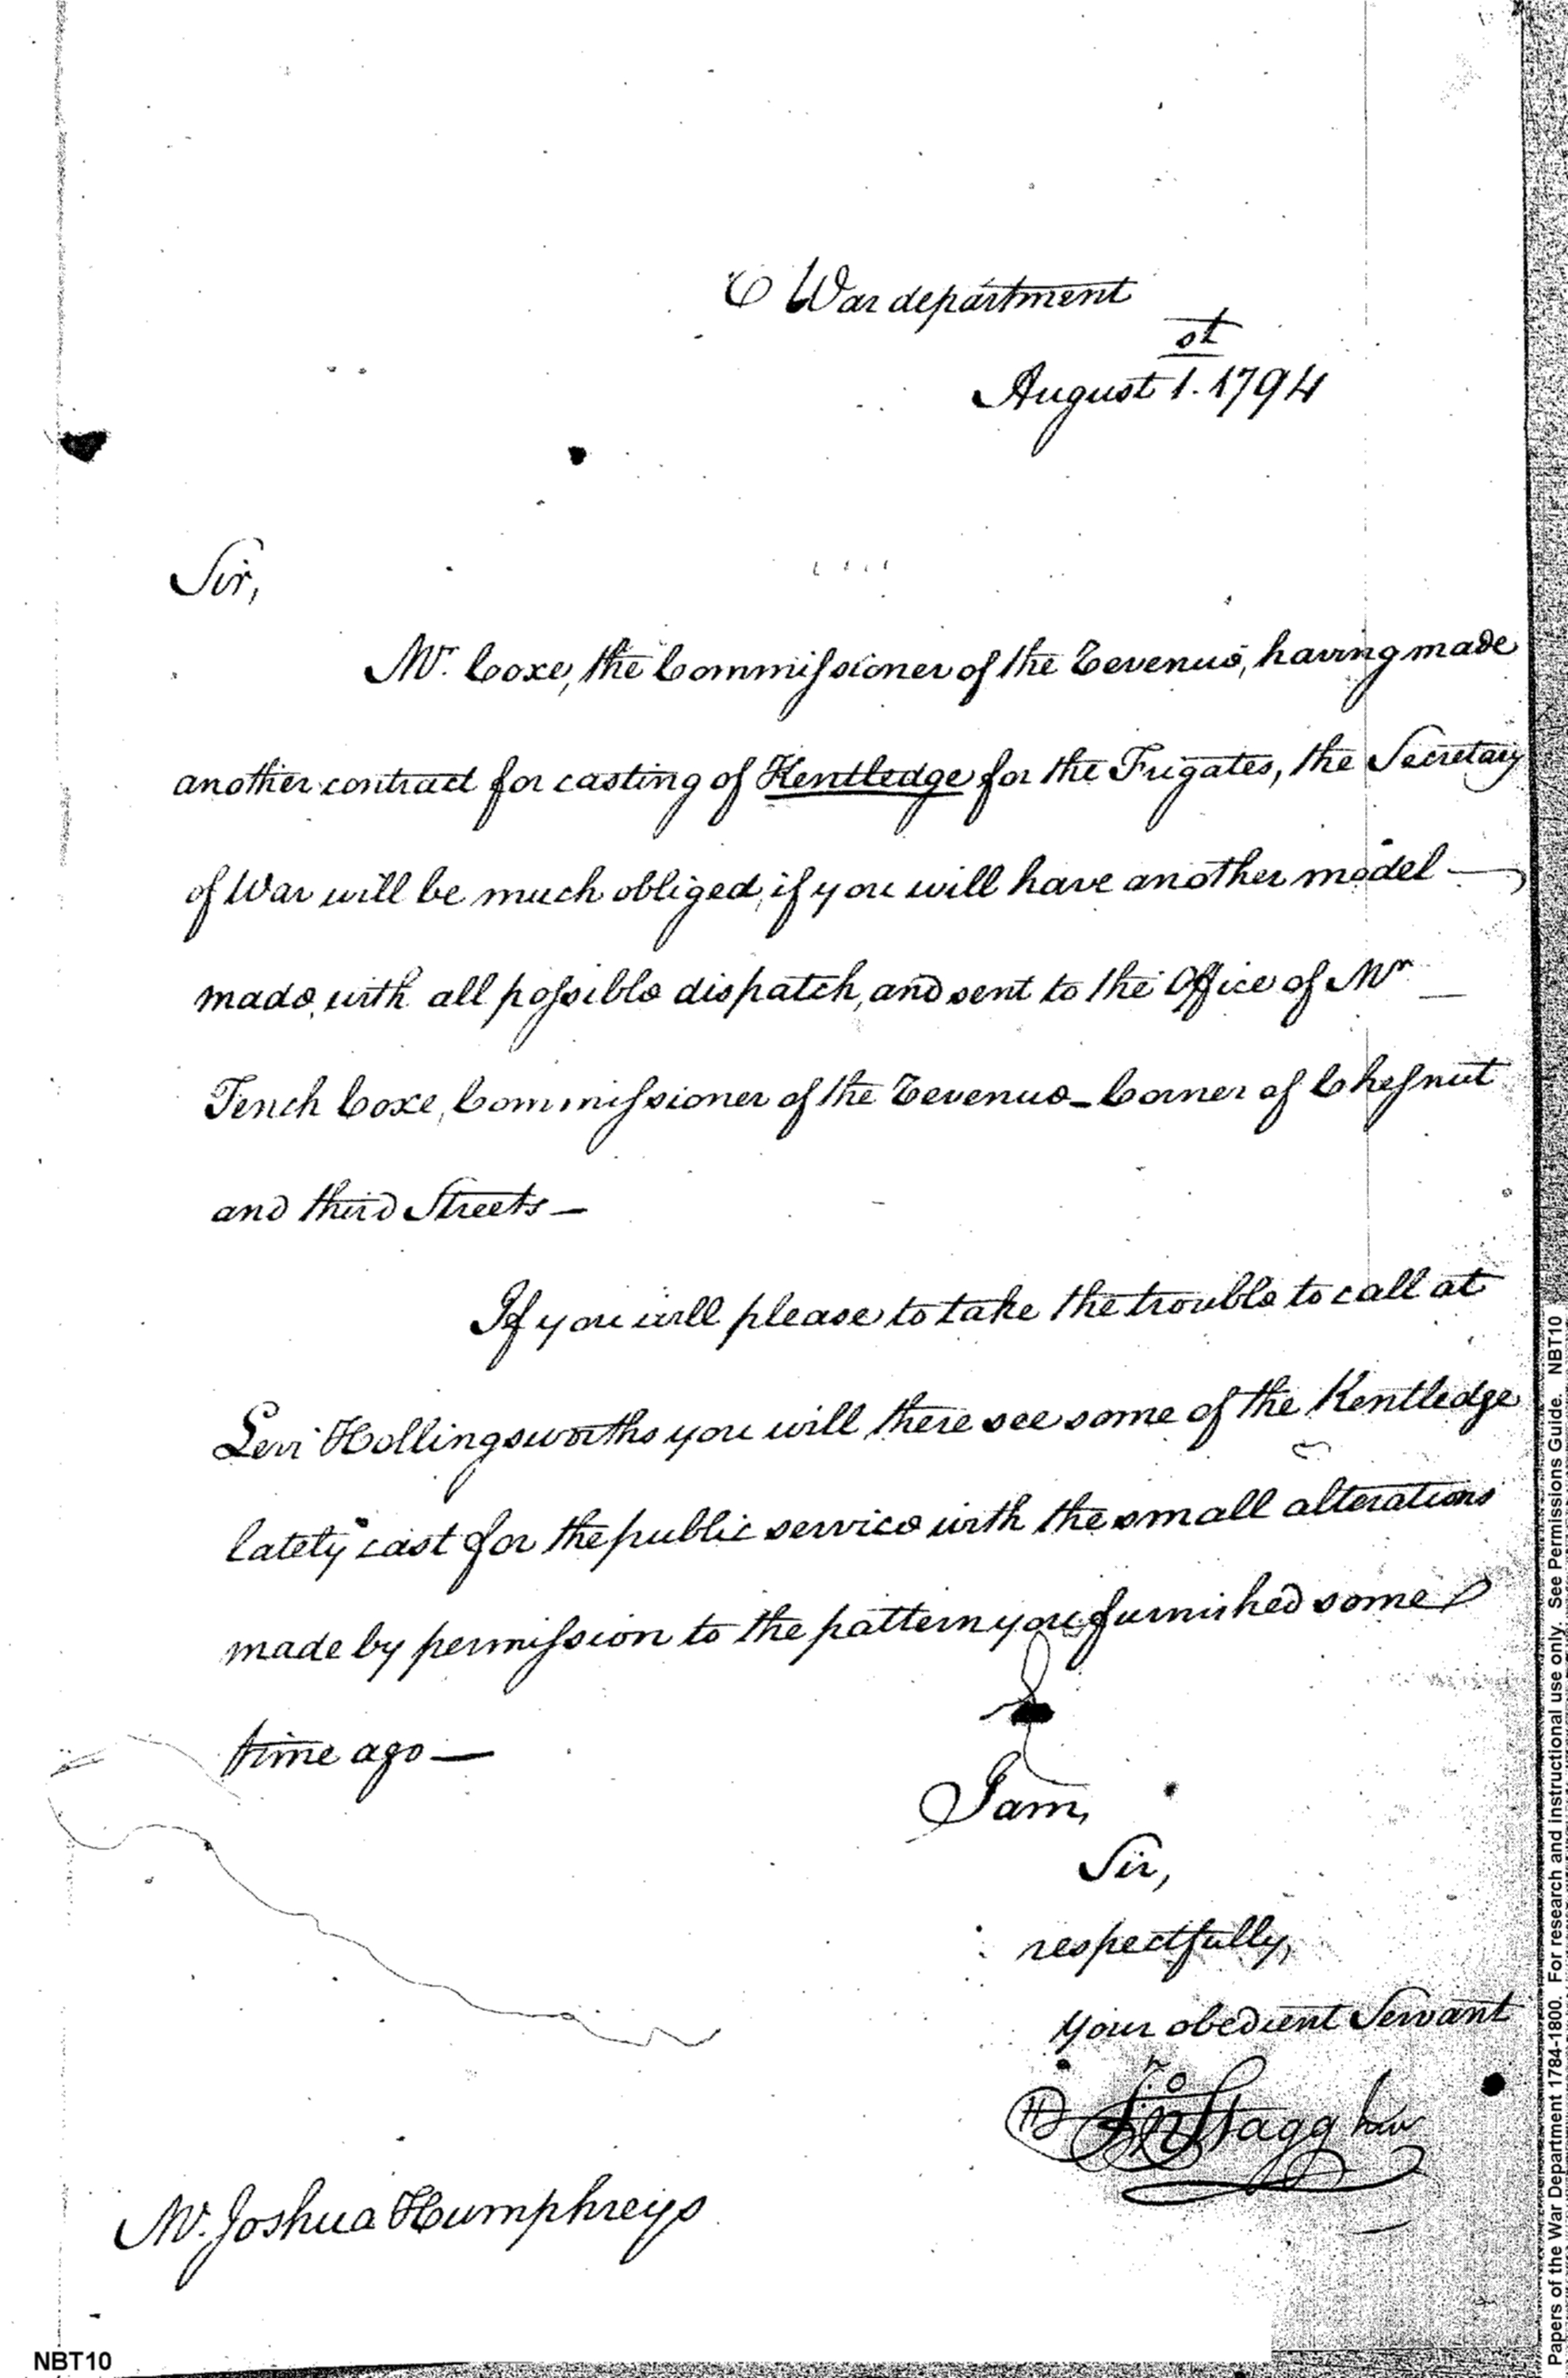 War department
August 1st. 1794
Sir,
Mr. Coxe, the Commissioner of the Revenue, having made
another contract for casting of Kentledge for the Frigates, the Secretary
of War will be much obliged, if you will have another model —
made, with all possible dispatch, and sent to the Office of Mr —
Tench Coxe, Commissioner of the Revenue — Corner of Chesnut
and third Streets —
If you will please to take the trouble to call at
Levi Hollingsworths you will there see some of the Kentledge
lately cast for the public service with the small alterations
made by permission to the pattern you furnished some
time ago —
I am,
Sir,
respectfully,
Your obedient Servant
Jno Stagg Junr
Mr. Joshua Humphreys
NBT10
Papers of the War Department 1784-1800. For research and instructional use only. See Permissions Guide. NBT10